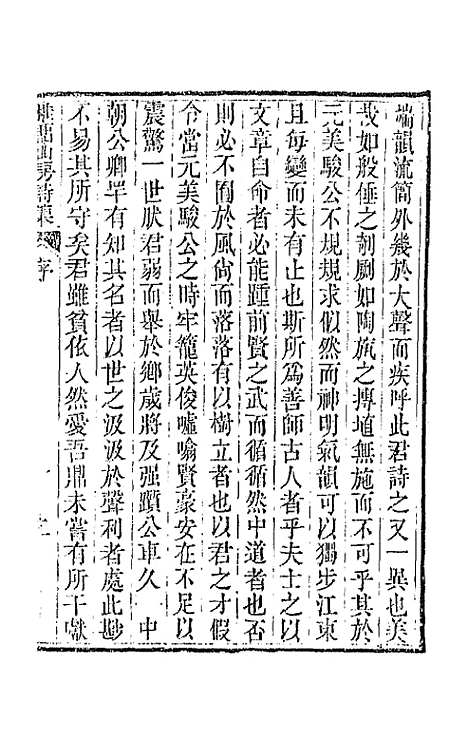 端韻流簡外幾於大聲而疾呼此君詩之又一異也美
哉如般倕之制劂如陶旊之摶埴無施而不可乎其於
元美駿公不規規求似然而神明氣韻可以獨步江東
且每變而未有止也斯所爲善師古人者乎夫士之以
文章自命者必能踵前賢之武而循循然中道者也否
則必不囿於風尚而落落有以樹立者也以君之才假
令當元美駿公之時牢籠英俊噓噏賢豪安在不足以
震驚一世肰君弱而舉於鄉歲將及强躓公車久 中
朝公卿罕有知其名者以世之汲汲於聲利者處此尠
不易其所守矣君雖貧依人然愛吾鼎未嘗有所干獻
山房詩集 序